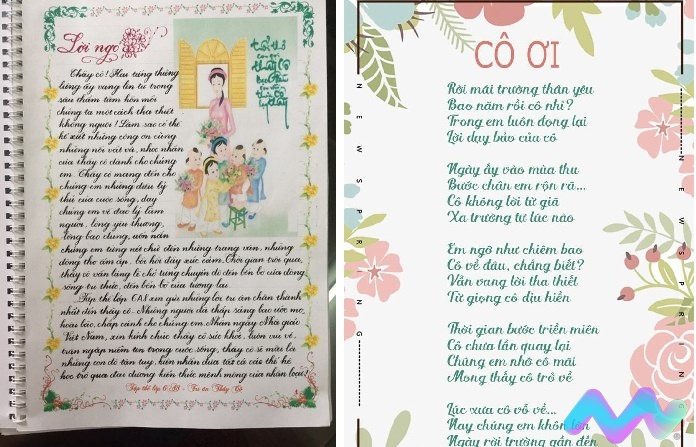 Lời ngỏ
Thầy cô! Hai tiếng thiêng
liêng ấy vang lên từ trong
sâu thẳm tâm hồn mỗi
chúng ta một cách tha thiết
không nguôi! Làm sao có thể
kể xiết những công ơn cùng
những nỗi vất vả, nhọc nhằn
của thầy cô dành cho chúng
em. Thầy cô mang đến cho
chúng em những điều lý
thú của cuộc sống, dạy
chúng em về đạo lý làm
người, lòng yêu thương,
lòng bao dung, uốn nắn
chúng em từng nét chữ đến những trang văn, những
dòng thơ ấm áp, bồi hồi đầy xúc cảm. Thời gian trôi qua,
thầy cô vẫn lặng lẽ chở từng chuyến đò đến bến bờ của dòng
sông tri thức, đến bến bờ của tương lai.
Tập thể lớp 6A8 xin gửi những lời tri ân chân thành
nhất đến thầy cô. Những người đã thắp sáng bao ước mơ,
hoài bão, chắp cánh cho chúng em. Nhân ngày Nhà giáo
Việt Nam, xin kính chúc thầy cô sức khỏe, luôn vui vẻ,
tràn ngập niềm tin trong cuộc sống, thầy cô sẽ mãi là
những con đò tận tụy, kiên nhẫn đưa tất cả các thế hệ
học trò qua đại dương kiến thức mênh mông của nhân loại!
Tập thể lớp 6A8 - Tri ân Thầy Cô
CÔ ƠI
Rời mái trường thân yêu
Bao năm rồi cô nhỉ?
Trong em luôn đọng lại
Lời dạy bảo của cô
Ngày ấy vào mùa thu
Bước chân em rộn rã...
Cô không lời từ giã
Xa trường tự lúc nào
Em ngỡ như chiêm bao
Cô về đâu, chẳng biết?
Vẫn vang lời tha thiết
Từ giọng cô dịu hiền
Thời gian bước triền miên
Cô chưa lần quay lại
Chúng em nhớ cô mãi
Mong thấy cô trở về
Lúc xưa cô vỗ về...
Nay chúng em khôn lớn
Ngày rời trường gần đến
NEWSPRING
NEWSPRING